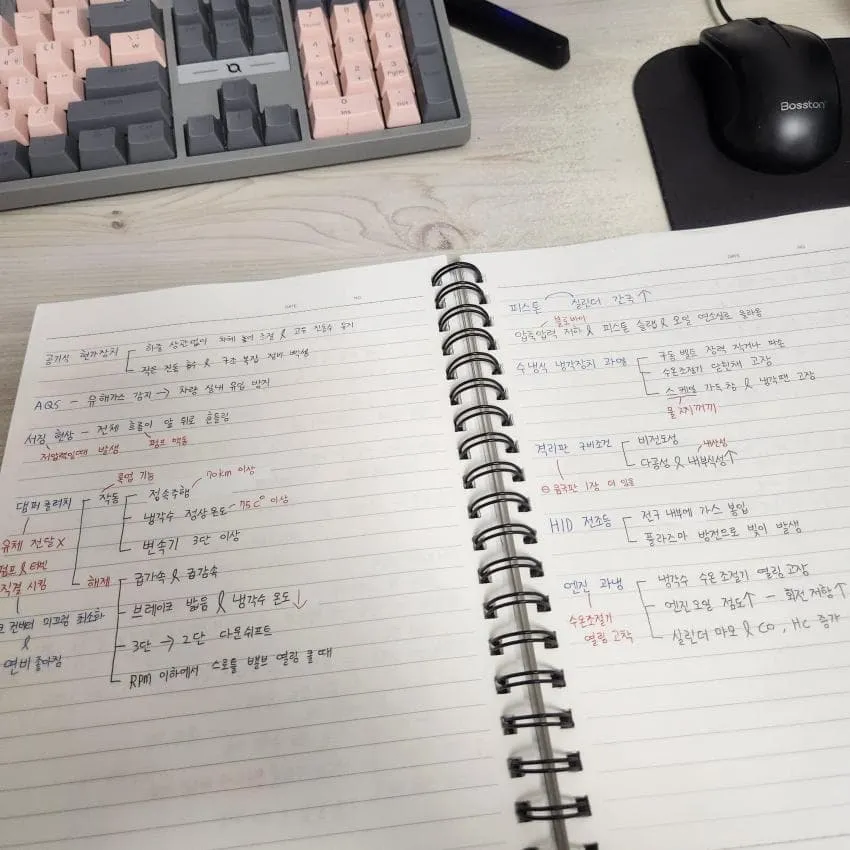 Bosston
DATE NO
공기식 현가장치
하중 상관없이 차체 높이 조절 & 고유 진동수 유지
작은 진동 흡수 & 구조 복잡 정비
AQS - 유해가스 감지 → 차량 실내 유입 방지
서징 현상 - 전체 흐름이 앞 뒤로 흔들림
저압력일때 발생
펌프 맥동
댐퍼 클러치
록업 기능
작동
정속주행
70km 이상
냉각수 정상 온도
75C° 이상
변속기 3단 이상
유체 전달 X
펌프 & 터빈
직결 시킴
컨버터 미끄럼 최소화
&
연비 좋아짐
해제
급가속 & 급감속
브레이크 밟음 & 냉각수 온도↓
3단 → 2단 다운쉬프트
RPM 이하에서 스로틀 밸브 열림 클 때
DATE NO
피스톤 실린더 간극↑
블로바이
압축압력 저하 & 피스톤 슬랩 & 오일 연소실로 올라옴
수냉식 냉각장치 과열
구동 벨트 장력 작거나 파손
수온조절기 닫힌채 고장
스케일 가득 참 & 냉각팬 고장
물 찌꺼끼
격리판 구비조건
비전도성
내산성
다공성 & 내부식성↑
⊖ 음극판 1장 더 있음
HID 전조등
전구 내부에 가스 봉입
플라즈마 방전으로 빛이 발생
엔진 과냉
수온조절기
열림 고착
냉각수 수온 조절기 열림 고장
엔진오일 점도↑ - 회전저항↑
실린더 마모 & CO, HC 증가